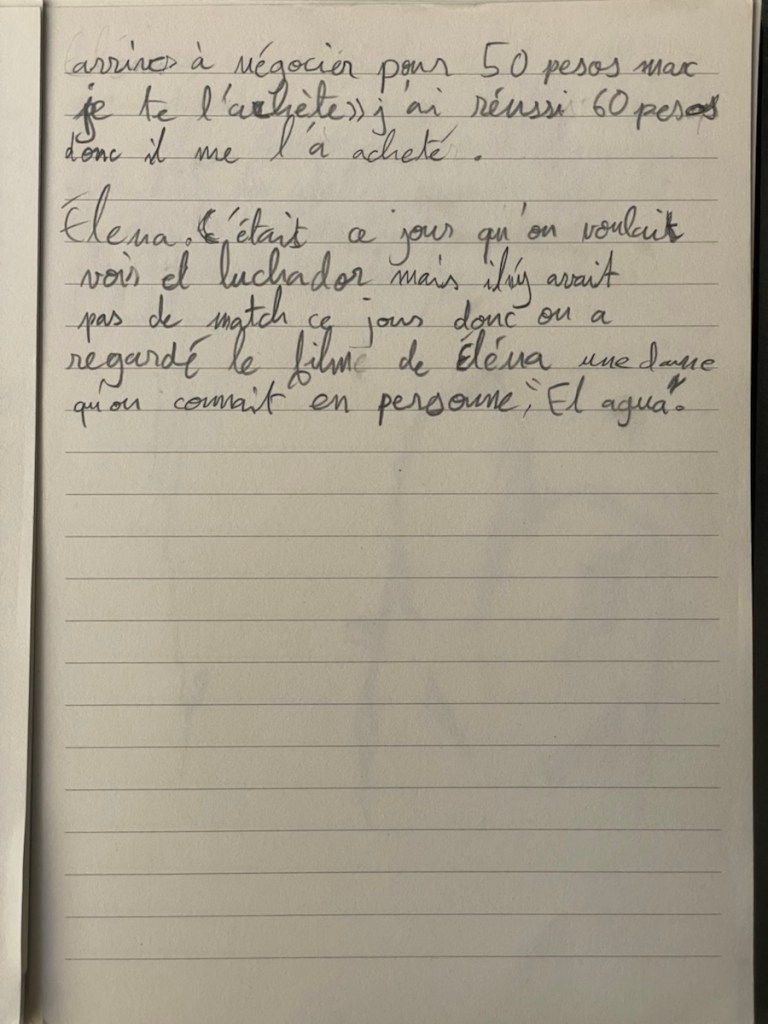 arrives à négocier pour 50 pesos max
je te l'achète» j'ai réussi 60 pesos
donc il me l'a acheté.
Élena. C'était ce jour qu'on voulait
voir el luchador mais il n'y avait
pas de match ce jour donc on a
regardé le film de Éléna une dame
qu'on connait en personne, "El agua".